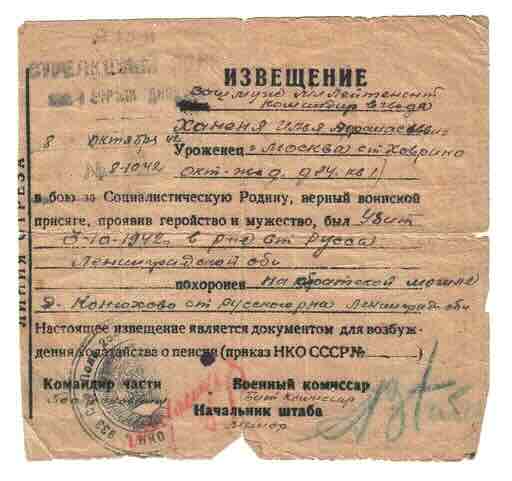 ИЗВЕЩЕНИЕ
Ваш муж мл лейтенант
командир взвода
8 октября 42
Ханеня Илья
№ 8-1042
Уроженец г Москва ст Ховрино
окт-жд д 24 кв 1
в бою за Социалистическую Родину, верный воинской
присяге, проявив геройство и мужество, был убит
-10-1942 г в р-не ст Русса
Ленинградской обл
похоронен на братской могиле
д- Конюхово ст Русского р-на Ленинград- обл
Настоящее извещение является документом для возбуж-
дения ходатайства о пенсии (приказ НКО СССР № )
Командир части Военный комиссар
Бат Комиссар
Начальник штаба
майор
ЛИНИЯ ОТРЕЗА
933